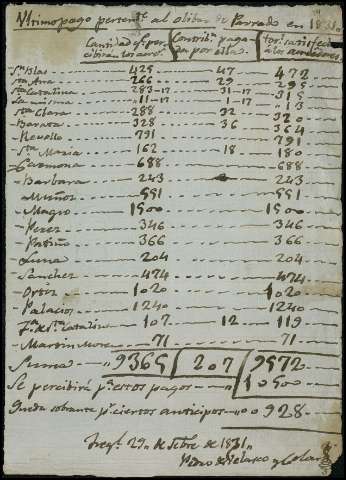 Ultimo pago pertent. al olibar de Parrado en 1831,,
Cantidad q.e per- Contribn. paga- Totl. satisfecho
cibirán los acreeds. da por ellos a los acreedores
Sn. Blas 425 47 472
Sta. Ana 266 29 295
Sta. Catalina 283-17 31-17 315
La misma 11-17 1-17 13
Sta. Clara 288 32 320
Baraxa 328 36 364
Revollo 791 791
Sta. Maria 162 18 180
Carmona 688 688
Barbara 243 243
Muñoz 551 551
Magro 1500 1500
Perez 346 346
Patiño 366 366
Luna 204 204
Sanchez 474 474
Ortiz 1020 1020
Palacios 1240 1240
Fa. de Sta. Catalina 107 12 119
Martin Mora 71 71
Suma 9365 207 9572
Se percibirá pa. estos pagos 10500
Queda sobrante pa. ciertos anticipos 0928
Fregl. 29 de Setbre de 1831,,
Pedro de Velasco y Colar